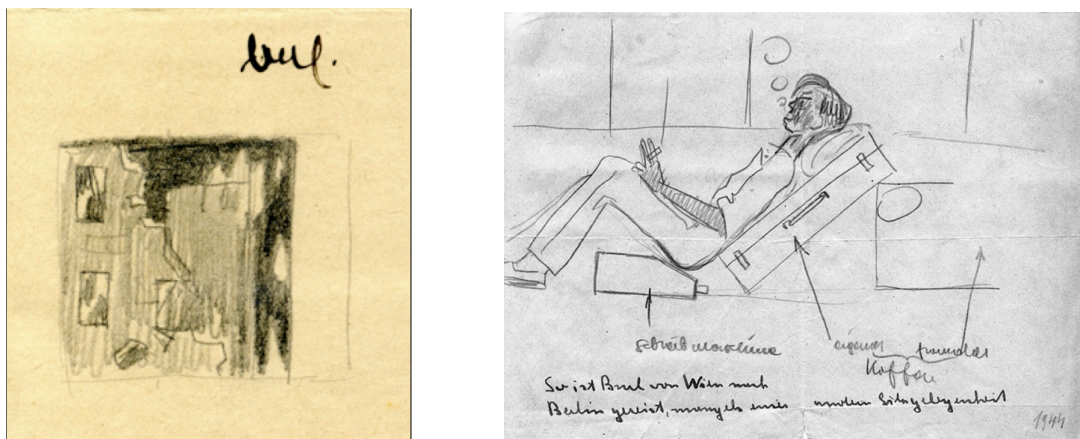 schreibmaschine
eigener fremder
Koffer
So ist von Wien nach
Berlin gereist, mangels einer andern Sitzgelegenheit
1944